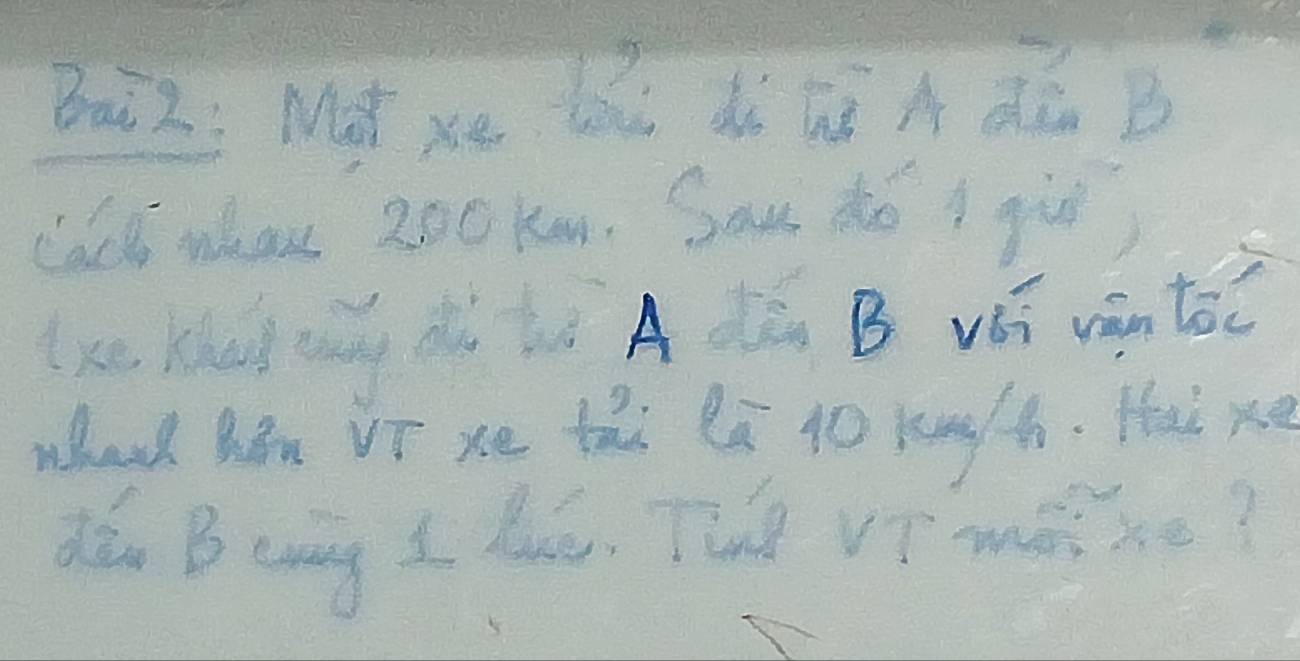 Bài 2: Một xe tải đi từ A đến B
cách nhau 200 km. Sau đó 1 giờ,
1 xe khác cũng đi từ A đến B với vận tốc
nhanh hơn VT xe tải là 10 km/h. Hai xe
đến B cùng 1 lúc. Tính VT mỗi xe?